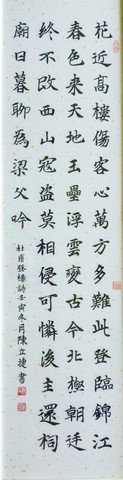 花近高樓傷客心萬方多難此登臨錦江
春色来天地玉壘浮雲變古今北極朝廷
終不改西山寇盜莫相侵可憐後主還祠
廟日暮聊為梁父吟
杜甫登樓詩壬寅冬月陳立捷書